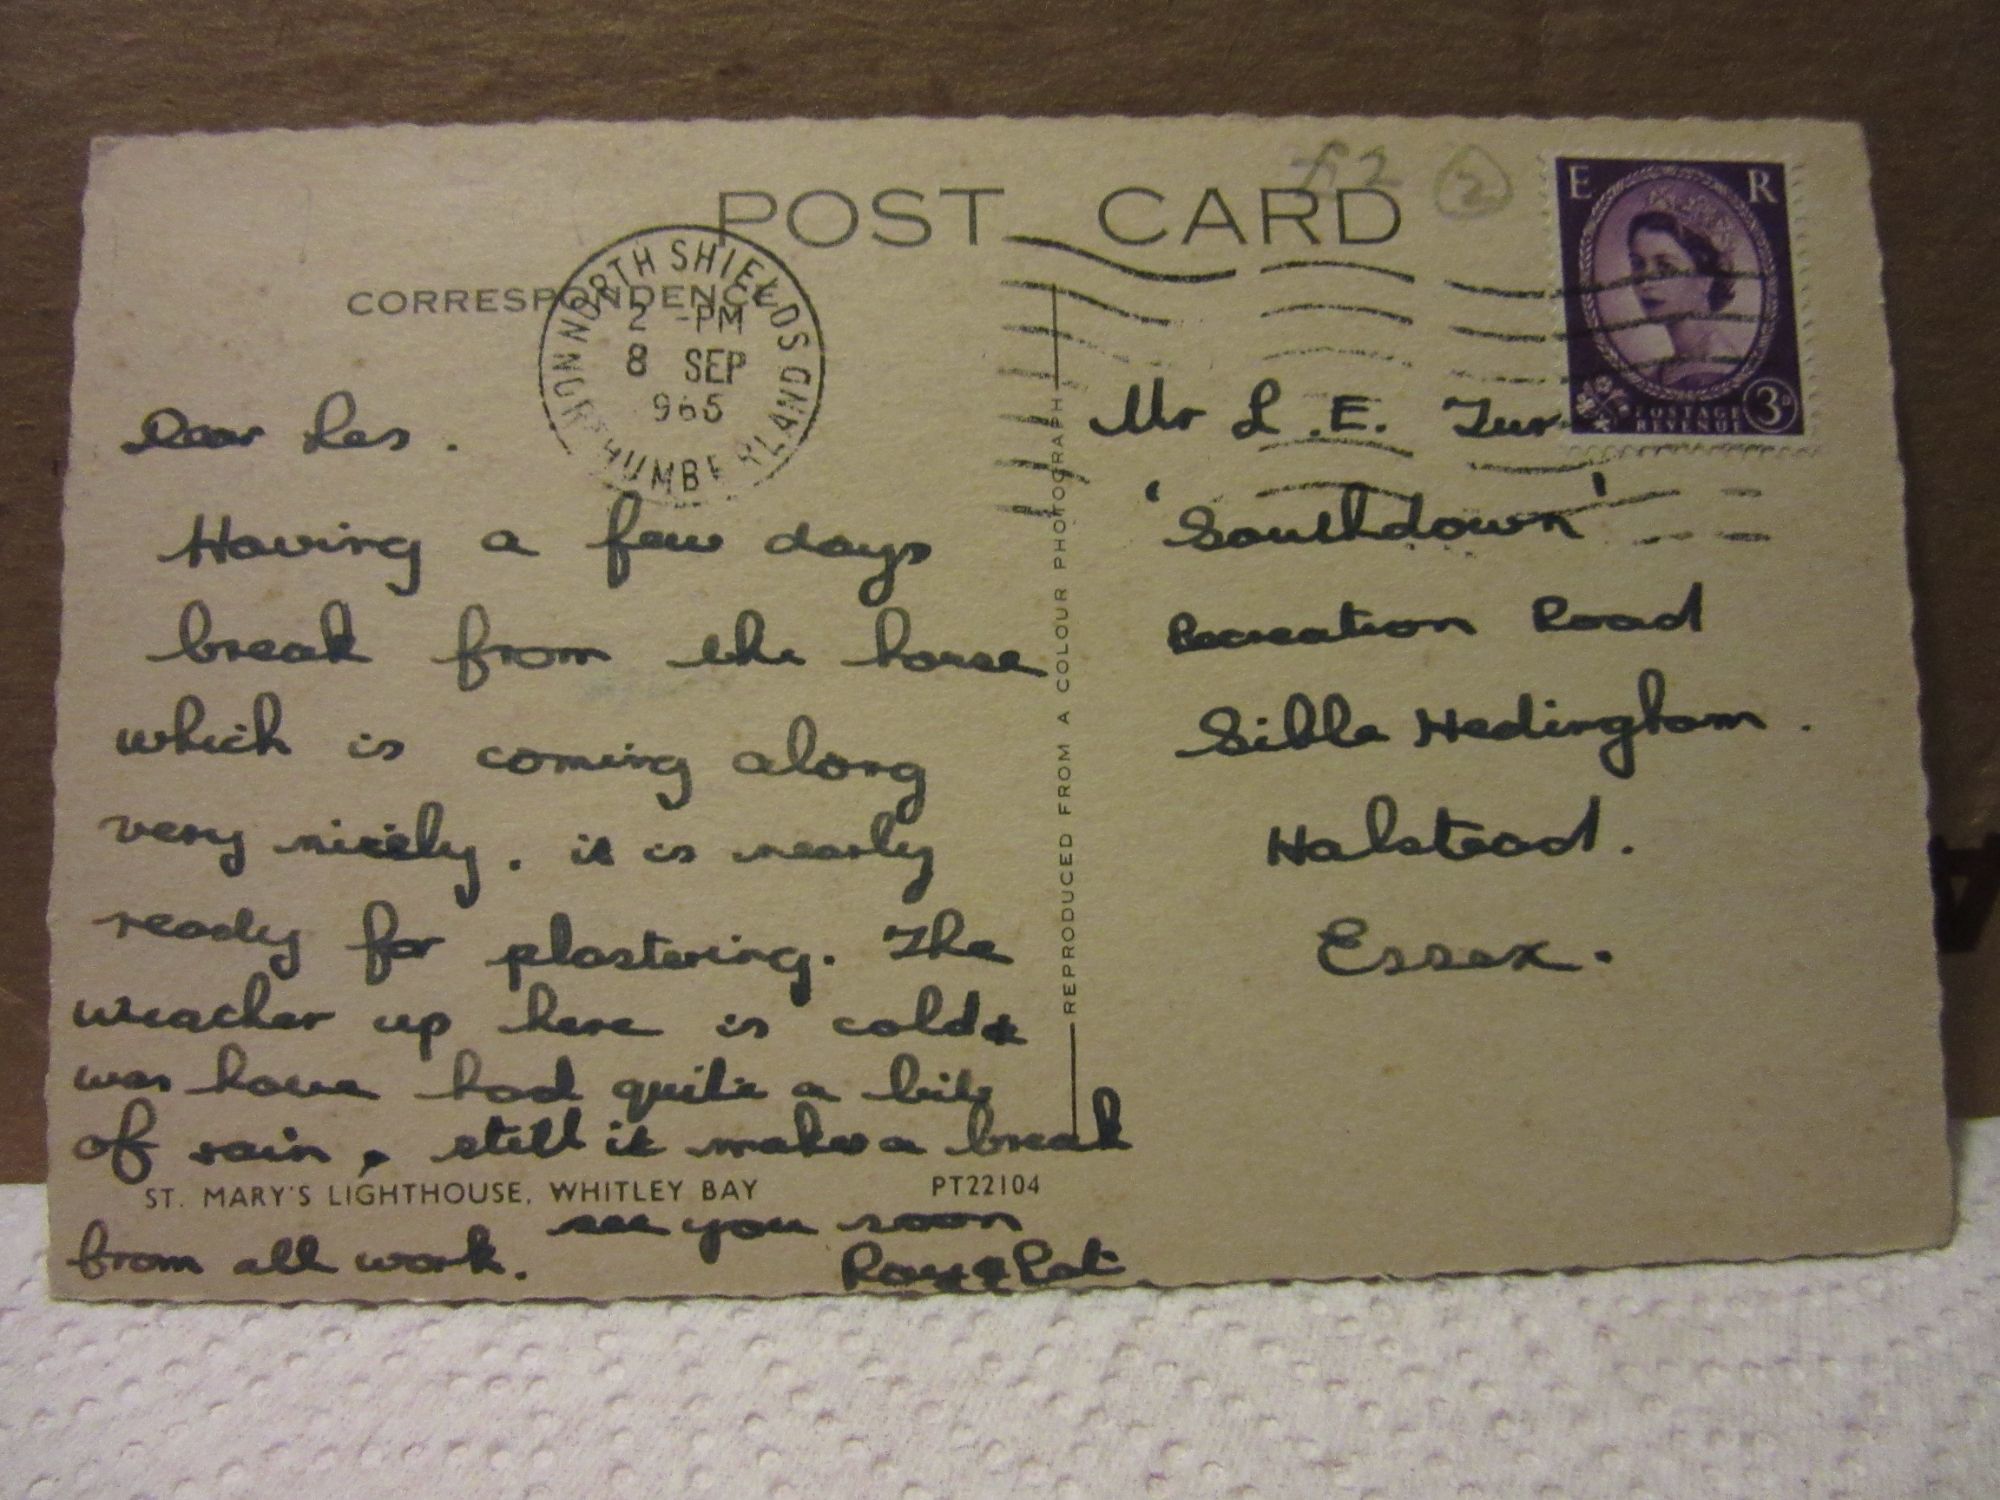 POST CARD
£2 2
CORRESPONDENCE
NORTH SHIELDS
2 - PM
8 SEP
965
NORTHUMBERLAND
E R
POSTAGE
REVENUE
3D
Dear Les.
Having a few days
break from the house
which is coming along
very nicely. it is nearly
ready for plastering. The
weather up here is cold &
was have had quite a bit
of rain, still it makes a break
from all work. see you soon
Roy & Pat
Mr L.E. Tur
'Southdown'
Recreation Road
Sible Hedingham.
Halstead.
Essex.
REPRODUCED FROM A COLOUR PHOTOGRAPH
ST. MARY'S LIGHTHOUSE, WHITLEY BAY PT22104